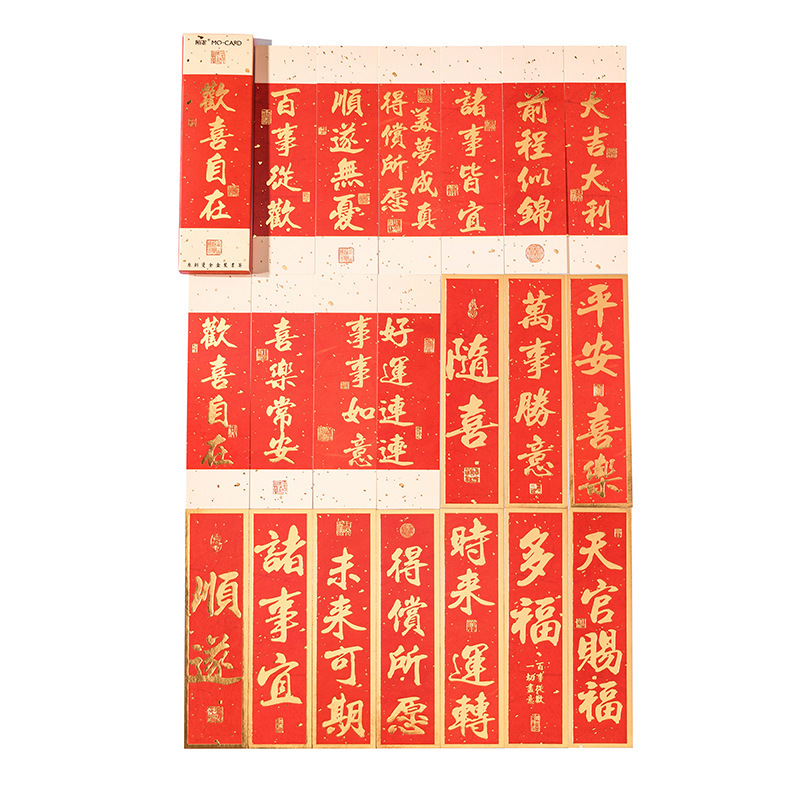 陌茉® MO-CARD
歡喜自在
百事從歡
順遂無憂
美夢成真
得償所愿
諸事皆宜
前程似錦
大吉大利
歡喜自在
喜樂常安
事事如意
好運連連
隨喜
萬事勝意
平安喜樂
順遂
諸事宜
未来可期
得償所愿
時来運轉
多福
百事從歡
一切盡意
天官賜福